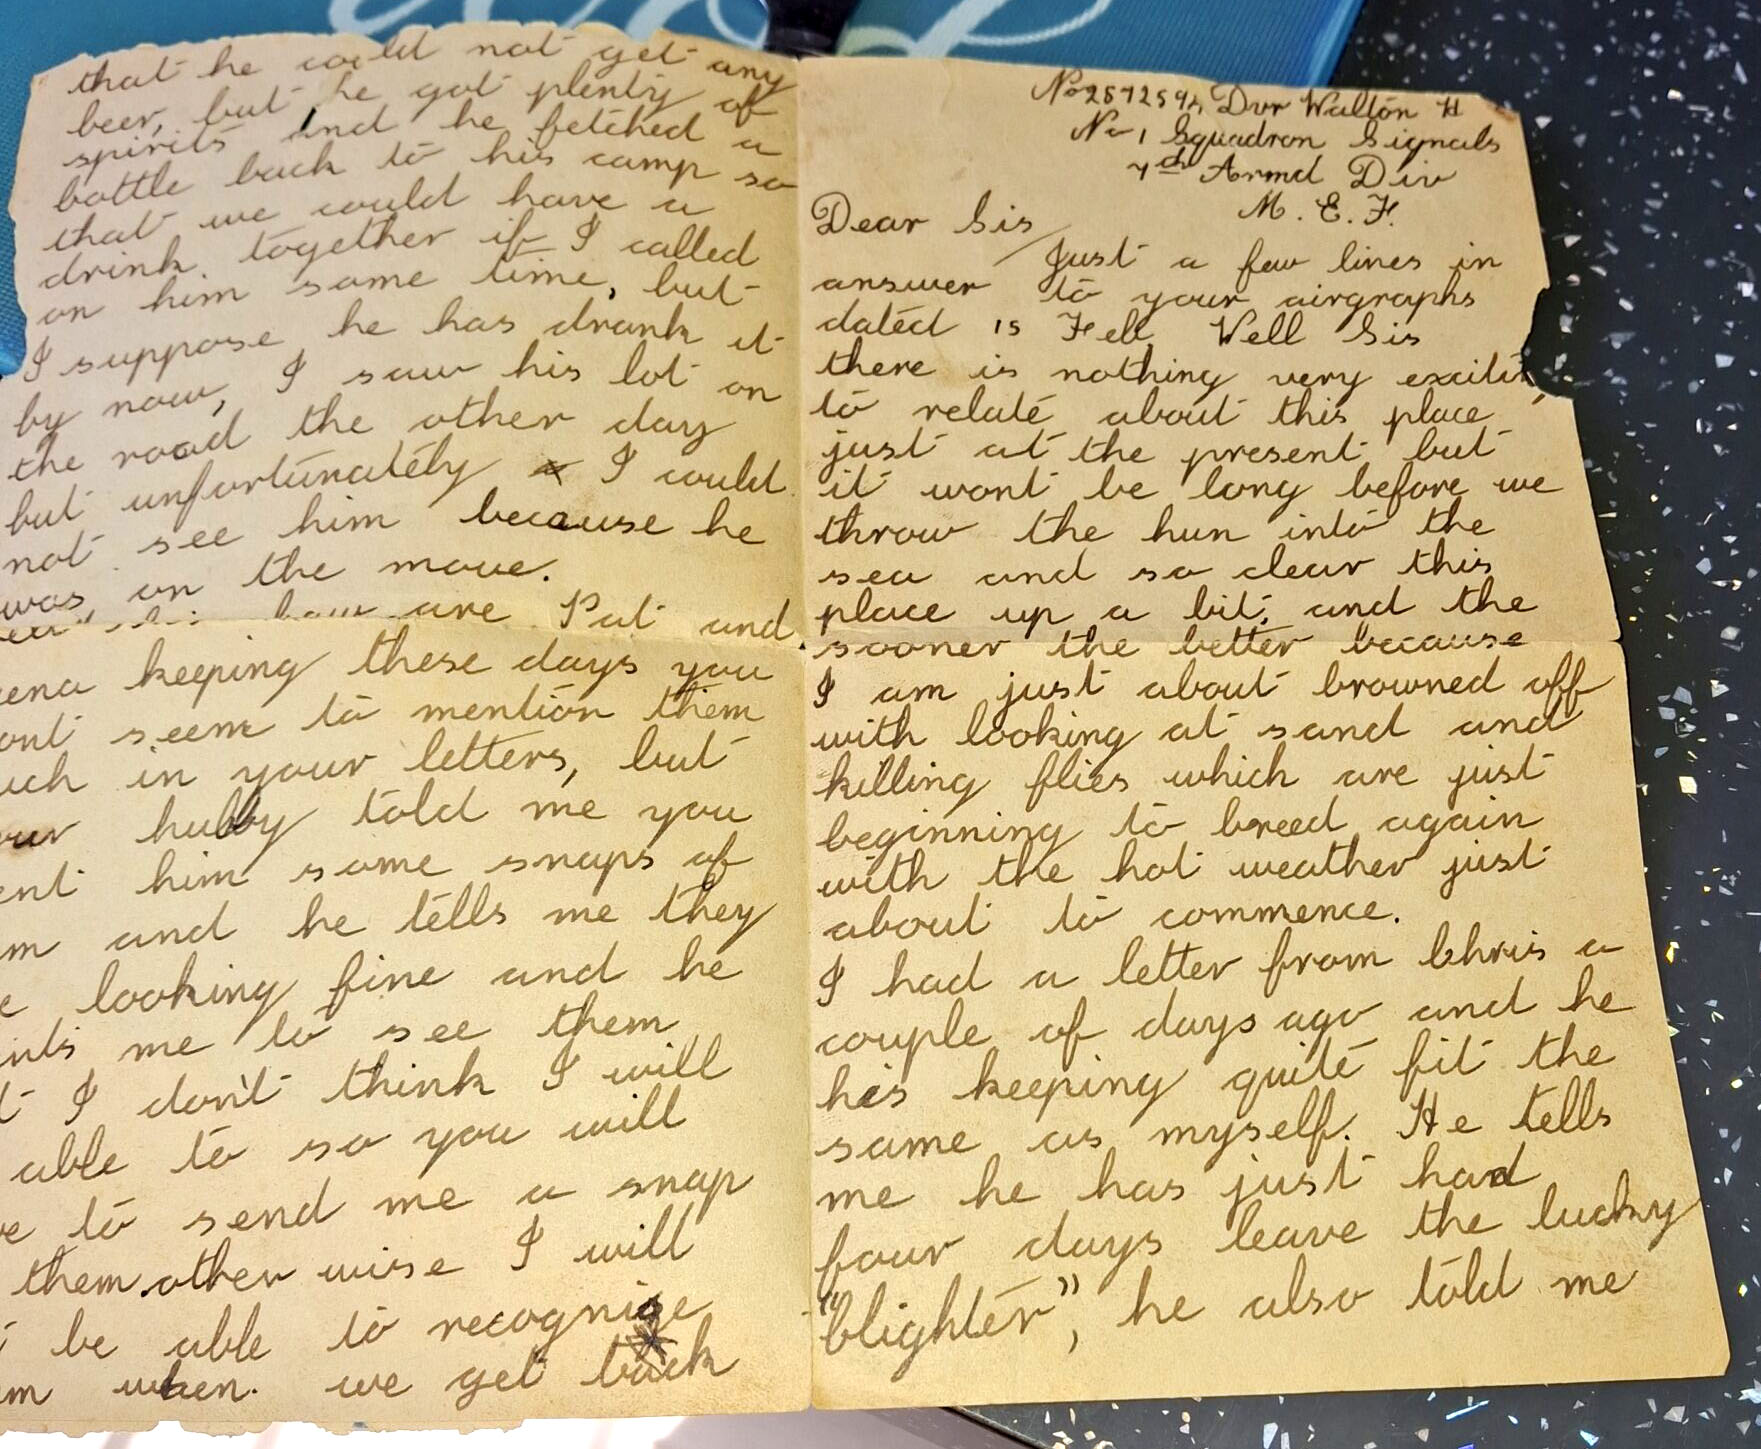 No 2872594 Dvr Walton H
No 1 Squadron Signals
7th Armd Div
M. E. F.
Dear Sis
Just a few lines in
answer to your airgraphs
dated 15 Feb, Well Sis
there is nothing very exciti
to relate about this place
just at the present but
it wont be long before we
throw the hun into the
sea and so clear this
place up a bit, and the
sooner the better because
I am just about browned off
with looking at sand and
killing flies which are just
beginning to breed again
with the hot weather just
about to commence.
I had a letter from Chris a
couple of days ago and he
his keeping quite fit the
same as myself. He tells
me he has just had
four days leave the lucky
"blighter", he also told me
that he could not get any
beer, but he got plenty of
spirits and he fetched a
bottle back to his camp so
that we could have a
drink together if I called
on him some time, but
I suppose he has drank it
by now, I saw his lot on
the road the other day
but unfortunately I could
not see him because he
was on the move.
how are Pat and
ena keeping these days you
ont seem to mention them
uch in your letters, but
ur hubby told me you
ent him some snaps of
m and he tells me they
e looking fine and he
nts me to see them
t I don't think I will
able to so you will
ve to send me a snap
them other wise I will
t be able to recognize
m when we get back